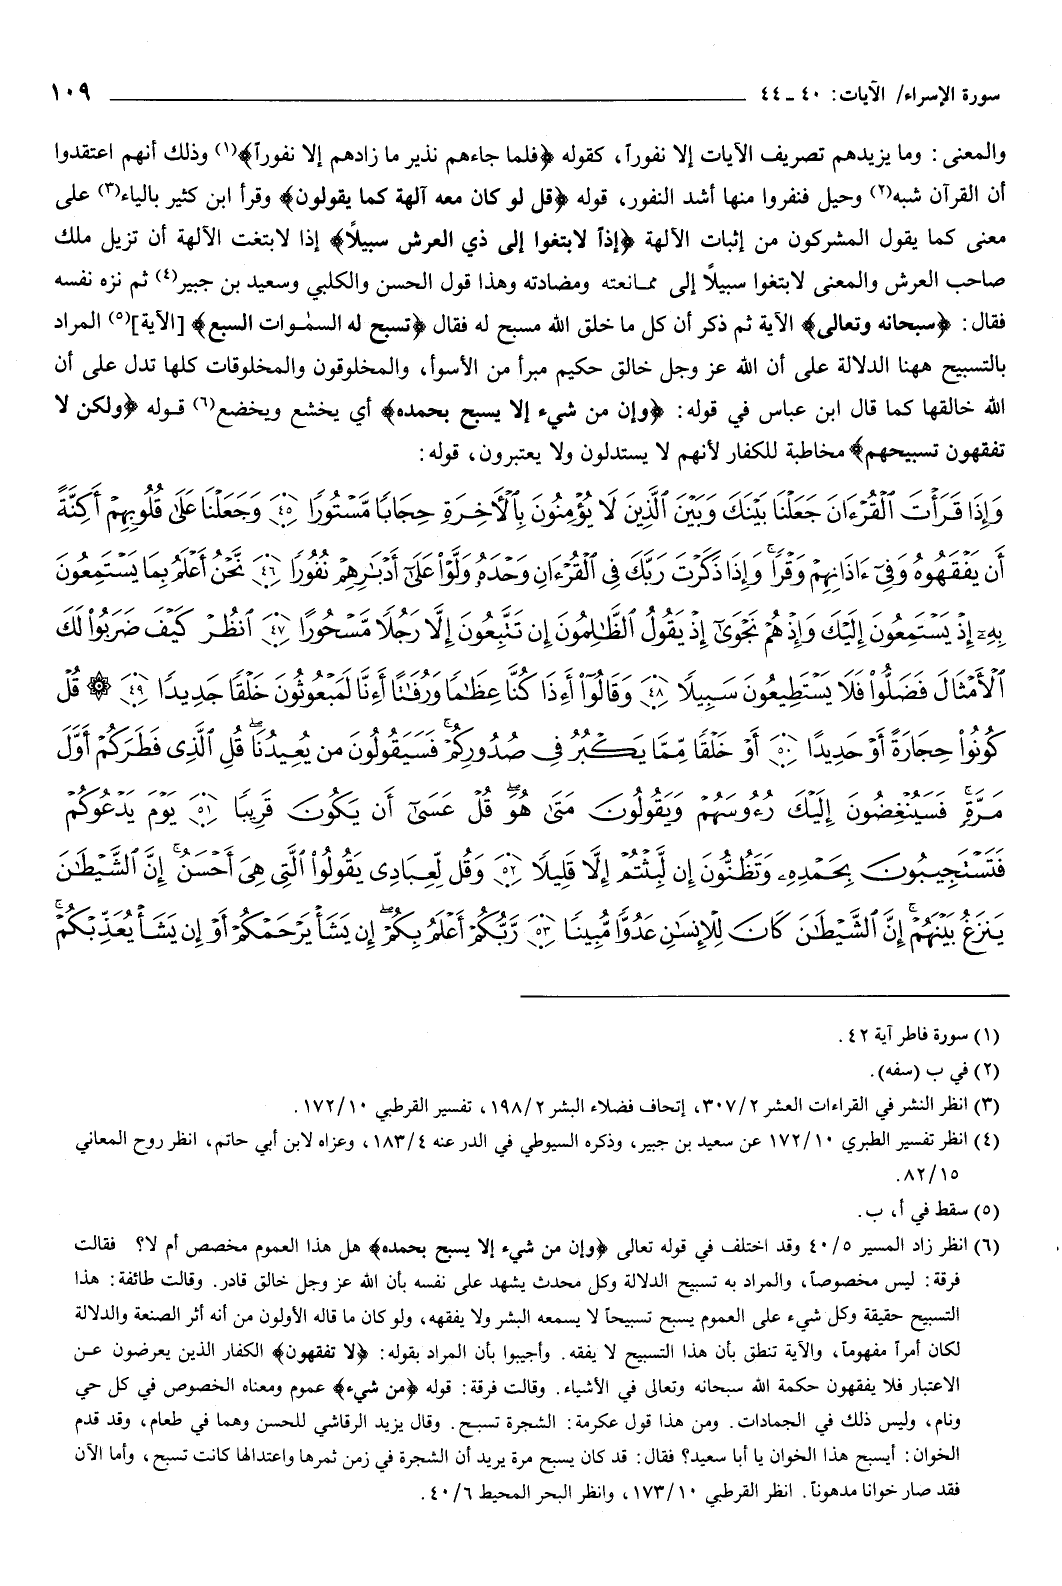 سورة الإسراء/ الآيات: ٤٠ ـ ٤٤ ١٠٩
والمعنى: وما يزيدهم تصريف الآيات إلا نفوراً، كقوله ﴿فلما جاءهم نذير ما زادهم إلا نفوراً﴾(١) وذلك أنهم اعتقدوا
أن القرآن شبه(٢) وحيل فنفروا منها أشد النفور، قوله ﴿قل لو كان معه آلهة كما يقولون﴾ وقرأ ابن كثير بالياء(٣) على
معنى كما يقول المشركون من إثبات الآلهة ﴿إذاً لابتغوا إلى ذي العرش سبيلاً﴾ إذا لابتغت الآلهة أن تزيل ملك
صاحب العرش والمعنى لابتغوا سبيلاً إلى ممانعته ومضادته وهذا قول الحسن والكلبي وسعيد بن جبير(٤) ثم نزه نفسه
فقال: ﴿سبحانه وتعالى﴾ الآية ثم ذكر أن كل ما خلق الله مسبح له فقال ﴿تسبح له السمٰوات السبع﴾ [الآية](٥) المراد
بالتسبيح ههنا الدلالة على أن الله عز وجل خالق حكيم مبرأ من الأسوأ، والمخلوقون والمخلوقات كلها تدل على أن
الله خالقها كما قال ابن عباس في قوله: ﴿وإن من شيء إلا يسبح بحمده﴾ أي يخشع ويخضع(٦) قوله ﴿ولكن لا
تفقهون تسبيحهم﴾ مخاطبة للكفار لأنهم لا يستدلون ولا يعتبرون، قوله:
وَإِذَا قَرَأْتَ ٱلْقُرْءَانَ جَعَلْنَا بَيْنَكَ وَبَيْنَ ٱلَّذِينَ لَا يُؤْمِنُونَ بِٱلْأَخِرَةِ حِجَابًا مَّسْتُورًا ﴿٤٥﴾ وَجَعَلْنَا عَلَىٰ قُلُوبِهِمْ أَكِنَّةً
أَن يَفْقَهُوهُ وَفِىٓ ءَاذَانِهِمْ وَقْرًا ۚ وَإِذَا ذَكَرْتَ رَبَّكَ فِى ٱلْقُرْءَانِ وَحْدَهُۥ وَلَّوْا۟ عَلَىٰٓ أَدْبَٰرِهِمْ نُفُورًا ﴿٤٦﴾ نَّحْنُ أَعْلَمُ بِمَا يَسْتَمِعُونَ
بِهِۦٓ إِذْ يَسْتَمِعُونَ إِلَيْكَ وَإِذْ هُمْ نَجْوَىٰٓ إِذْ يَقُولُ ٱلظَّٰلِمُونَ إِن تَتَّبِعُونَ إِلَّا رَجُلًا مَّسْحُورًا ﴿٤٧﴾ ٱنظُرْ كَيْفَ ضَرَبُوا۟ لَكَ
ٱلْأَمْثَالَ فَضَلُّوا۟ فَلَا يَسْتَطِيعُونَ سَبِيلًا ﴿٤٨﴾ وَقَالُوٓا۟ أَءِذَا كُنَّا عِظَٰمًا وَرُفَٰتًا أَءِنَّا لَمَبْعُوثُونَ خَلْقًا جَدِيدًا ﴿٤٩﴾ ۞ قُلْ
كُونُوا۟ حِجَارَةً أَوْ حَدِيدًا ﴿٥٠﴾ أَوْ خَلْقًا مِّمَّا يَكْبُرُ فِى صُدُورِكُمْ ۚ فَسَيَقُولُونَ مَن يُعِيدُنَا ۖ قُلِ ٱلَّذِى فَطَرَكُمْ أَوَّلَ
مَرَّةٍ ۚ فَسَيُنْغِضُونَ إِلَيْكَ رُءُوسَهُمْ وَيَقُولُونَ مَتَىٰ هُوَ ۖ قُلْ عَسَىٰٓ أَن يَكُونَ قَرِيبًا ﴿٥١﴾ يَوْمَ يَدْعُوكُمْ
فَتَسْتَجِيبُونَ بِحَمْدِهِۦ وَتَظُنُّونَ إِن لَّبِثْتُمْ إِلَّا قَلِيلًا ﴿٥٢﴾ وَقُل لِّعِبَادِى يَقُولُوا۟ ٱلَّتِى هِىَ أَحْسَنُ ۚ إِنَّ ٱلشَّيْطَٰنَ
يَنزَغُ بَيْنَهُمْ ۚ إِنَّ ٱلشَّيْطَٰنَ كَانَ لِلْإِنسَٰنِ عَدُوًّا مُّبِينًا ﴿٥٣﴾ رَّبُّكُمْ أَعْلَمُ بِكُمْ ۖ إِن يَشَأْ يَرْحَمْكُمْ أَوْ إِن يَشَأْ يُعَذِّبْكُمْ ۚ
(١) سورة فاطر آية ٤٢.
(٢) في ب (سفه).
(٣) انظر النشر في القراءات العشر ٣٠٧/٢، إتحاف فضلاء البشر ١٩٨/٢، تفسير القرطبي ١٧٢/١٠.
(٤) انظر تفسير الطبري ١٧٢/١٠ عن سعيد بن جبير، وذكره السيوطي في الدر عنه ١٨٣/٤، وعزاه لابن أبي حاتم، انظر روح المعاني
٨٢/١٥.
(٥) سقط في أ، ب.
(٦) انظر زاد المسير ٤٠/٥ وقد اختلف في قوله تعالى ﴿وإن من شيء إلا يسبح بحمده﴾ هل هذا العموم مخصص أم لا؟ فقالت
فرقة: ليس مخصوصاً، والمراد به تسبيح الدلالة وكل محدث يشهد على نفسه بأن الله عز وجل خالق قادر. وقالت طائفة: هذا
التسبيح حقيقة وكل شيء على العموم يسبح تسبيحاً لا يسمعه البشر ولا يفقهه، ولو كان ما قاله الأولون من أنه أثر الصنعة والدلالة
لكان أمراً مفهوماً، والآية تنطق بأن هذا التسبيح لا يفقه. وأجيبوا بأن المراد بقوله: ﴿لا تفقهون﴾ الكفار الذين يعرضون عن
الاعتبار فلا يفقهون حكمة الله سبحانه وتعالى في الأشياء. وقالت فرقة: قوله ﴿من شيء﴾ عموم ومعناه الخصوص في كل حي
ونام، وليس ذلك في الجمادات. ومن هذا قول عكرمة: الشجرة تسبح. وقال يزيد الرقاشي للحسن وهما في طعام، وقد قدم
الخوان: أيسبح هذا الخوان يا أبا سعيد؟ فقال: قد كان يسبح مرة يريد أن الشجرة في زمن ثمرها واعتدالها كانت تسبح، وأما الآن
فقد صار خوانا مدهوناً. انظر القرطبي ١٧٣/١٠، وانظر البحر المحيط ٤٠/٦.